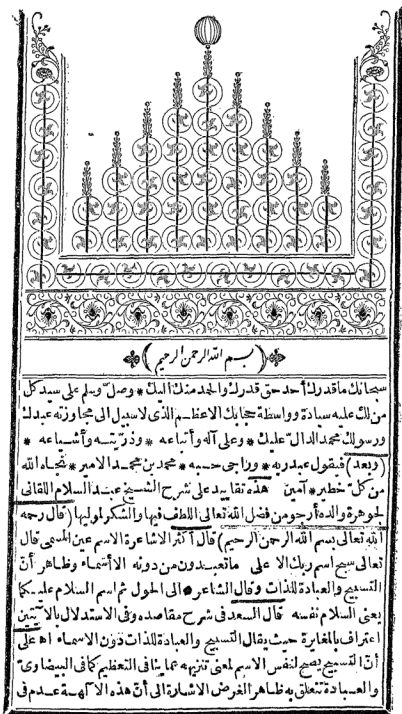 (بسم الله الرحمن الرحيم)
سبحانك ما قدرك أحد حق قدرك والحمد منك اليك * وصل وسلم على سيد كل
من لك عليه سيادة وواسطة حجابك الاعظم الذى لا سبيل الى مجاوزته عبدك
ورسولك محمد الدال عليك * وعلى آله وأتباعه * وذريته وأشياعه *
(وبعد) فيقول عبد ربه * وراجى حسبه * محمد بن محمد الامير * نجاه الله
من كل خطير * آمين هذه تقاييد على شرح الشيخ عبد السلام اللقانى
لجوهرة والده أرجو من فضل الله تعالى اللطف فيها والشكر لموليها (قال رحمه
الله تعالى بسم الله الرحمن الرحيم) قال أكثر الاشاعرة الاسم عين المسمى قال
تعالى سبح اسم ربك الاعلى ما تعبدون من دونه الا أسماء وظاهر أن
التسبيح والعبادة للذات وقال الشاعر * الى الحول ثم اسم السلام عليكما
يعنى السلام نفسه قال السعد فى شرح مقاصده وفى الاستدلال بالآيتين
اعتراف بالمغايرة حيث يقال التسبيح والعبادة للذات دون الاسماء اه على
أن التسبيح يصح لنفس الاسم لمعنى تنزيهه عما ينافى التعظيم كما فى البيضاوى
والعبادة تتعلق به ظاهر الغرض الاشارة الى أن هذه الآلهة عدم فى